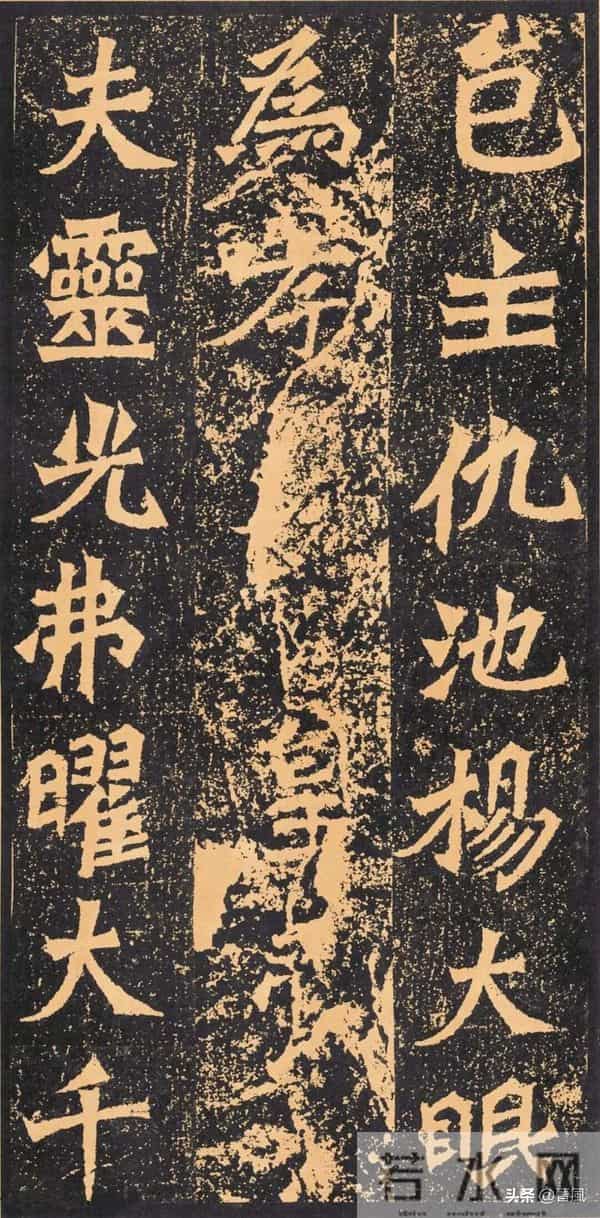 邑主仇池楊大眼
為孝皇
夫靈光弗曜大千
若水网
头条